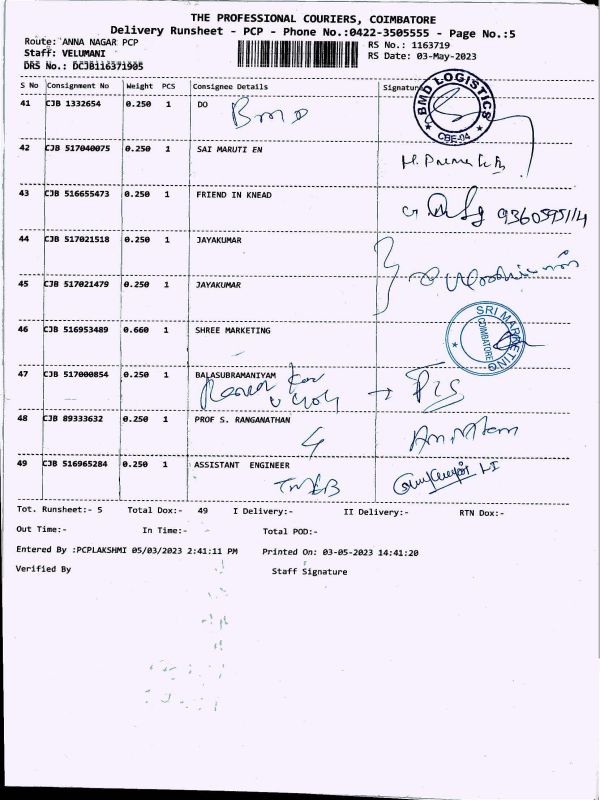 THE PROFESSIONAL COURIERS, COIMBATORE
Delivery Runsheet - PCP - Phone No.:0422-3505555 - Page No.:5
Route: ANNA NAGAR PCP
RS No.: 1163719
Staff: VELUMANI
RS Date: 03-May-2023
DRS No.: DCJB116371905
S No Consignment No Weight PCS Consignee Details Signature
BMD LOGISTICS
CBE-04
41 CJB 1332654 0.250 1 DO
BMD
42 CJB 517040075 0.250 1 SAI MARUTI EN
43 CJB 516655473 0.250 1 FRIEND IN KNEAD
9360595114
44 CJB 517021518 0.250 1 JAYAKUMAR
45 CJB 517021479 0.250 1 JAYAKUMAR
46 CJB 516953489 0.660 1 SHREE MARKETING
SRI MARKETING
COIMBATORE
47 CJB 517000854 0.250 1 BALASUBRAMANIYAM
48 CJB 89333632 0.250 1 PROF S. RANGANATHAN
49 CJB 516965284 0.250 1 ASSISTANT ENGINEER
Tot. Runsheet:- 5 Total Dox:- 49 I Delivery:- II Delivery:- RTN Dox:-
Out Time:- In Time:- Total POD:-
Entered By :PCPLAKSHMI 05/03/2023 2:41:11 PM Printed On: 03-05-2023 14:41:20
Verified By Staff Signature